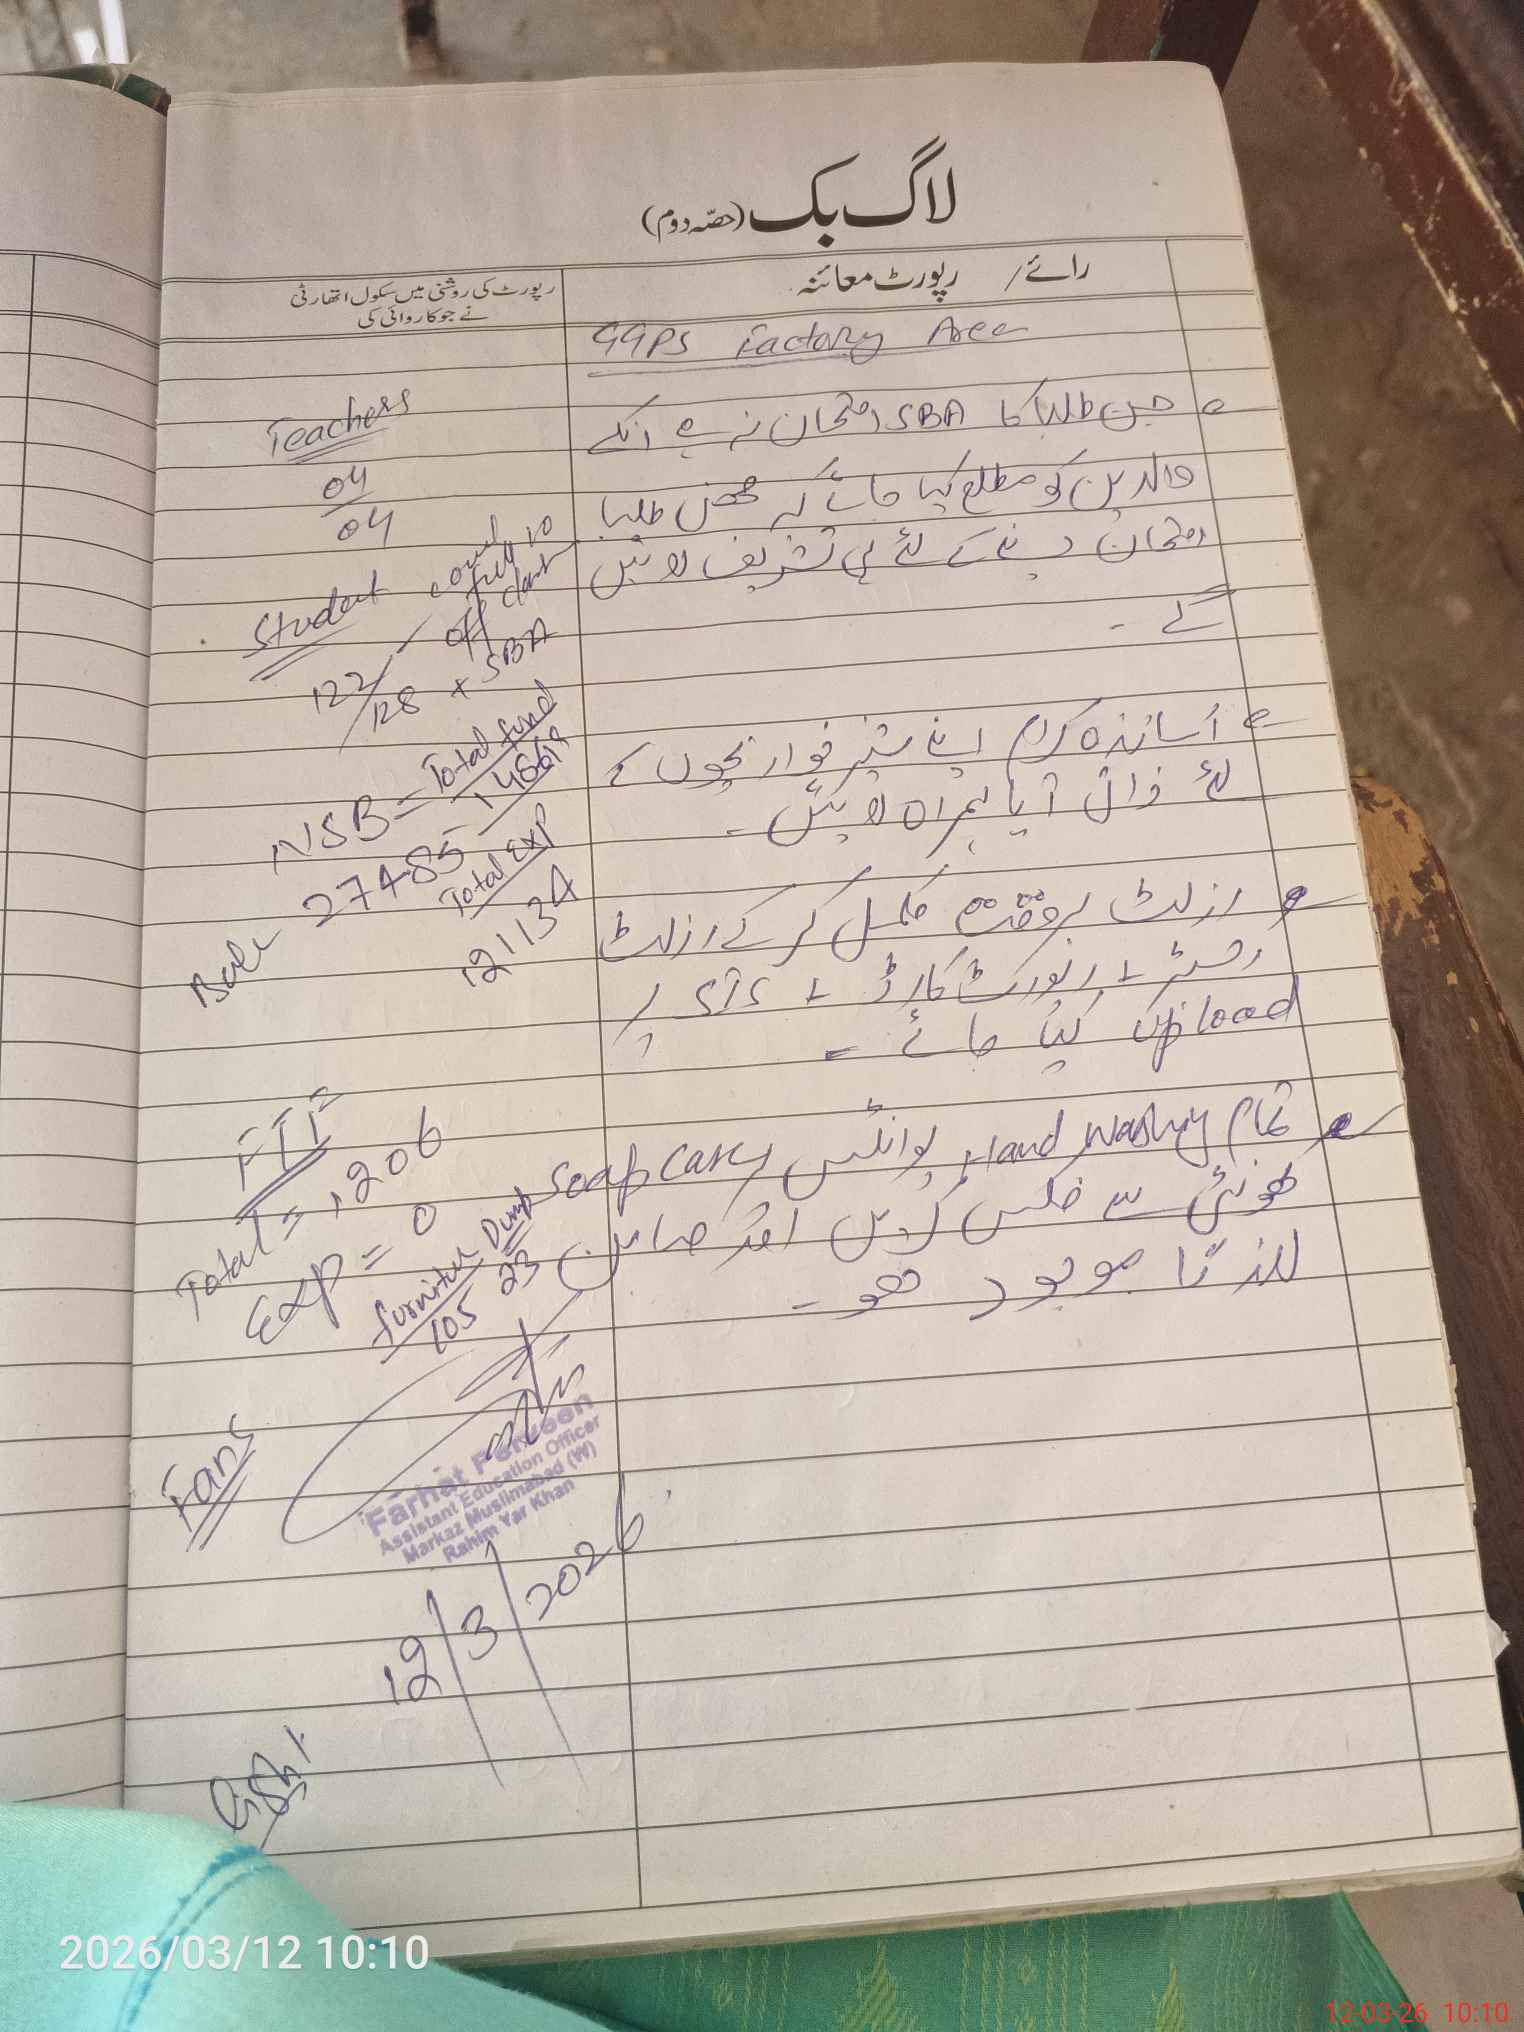 لاگ بک (حصّہ دوم)
رائے / رپورٹ معائنہ
رپورٹ کی روشنی میں سکول اتھارٹی
نے جو کاروائی کی
GGPS Factory Area
جن طلبا کا SBA امتحان نہ ہے انکے
والدین کو مطلع کیا جائے کہ طلبا
امتحان دینے کے لئے ہی تشریف لائیں
گے۔
اساتذہ کرام اپنے شیر خوار بچوں کے
لئے ذاتی آیا ہمراہ لائیں۔
رزلٹ بروقت مکمل کر کے رزلٹ
رجسٹر + رپورٹ کارڈ + SIS پر
Upload کیا جائے۔
تمام Hand Washing پوائنٹس پر Soap
کھونٹی سے فکس کریں اور صابن
لازماً موجود ہو۔
Teachers
04
04
Student
122/128
off
+ SBA
NSB = Total fund
148619
27485
Total EXP
121134
FTF
Total = 1206
Exp = 0
furniture Dump
105 23
Fans
Farhat Parveen
Assistant Education Officer
Markaz Muslimabad (W)
Rahim Yar Khan
12/3/2026
Light
2026/03/12 10:10
12-03-26 10:10